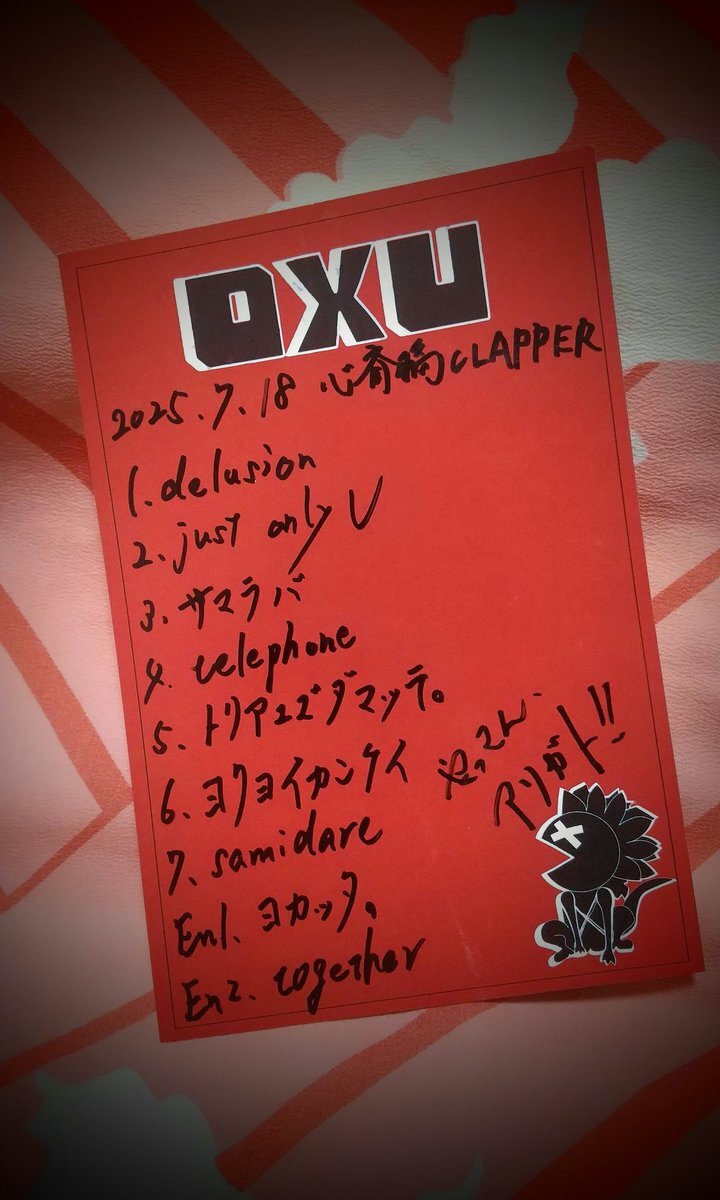 OXU
2025.7.18 心斎橋CLAPPER
1. delusion
2. just only U
3. サマラバ
4. telephone
5. トリアエズダマッテ。
6. ヨクヨイカンケイ
7. samidare
En1. ヨカッタ。
En2. together
アリガト!!